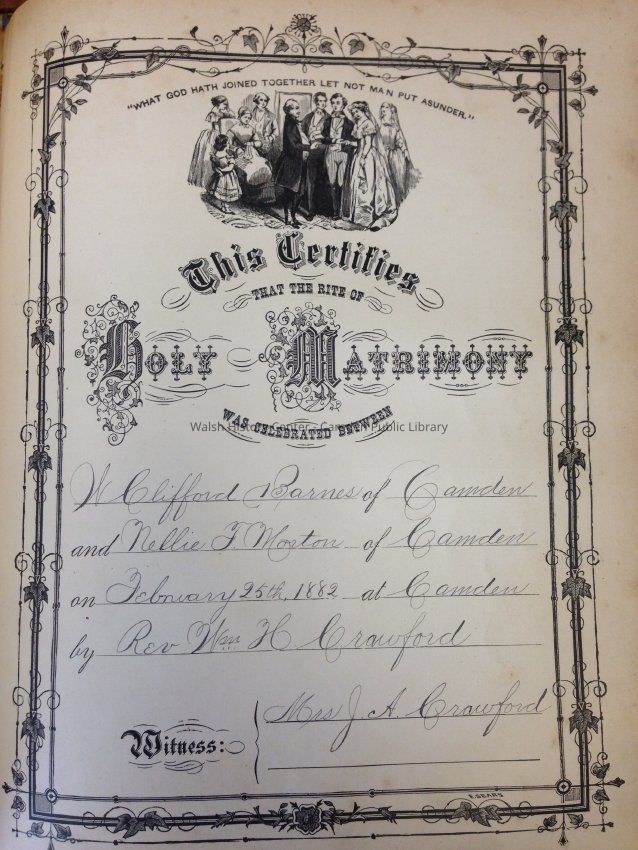 "WHAT GOD HATH JOINED TOGETHER LET NOT MAN PUT ASUNDER."
This Certifies
THAT THE RITE OF
HOLY MATRIMONY
WAS CELEBRATED BETWEEN
Walsh History Center - Camden Public Library
W Clifford Barnes of Camden
and Nellie F. Morton of Camden
on February 25th, 1882 at Camden
by Rev Wm H Crawford
Mrs J A. Crawford
Witness:
E. SEARS